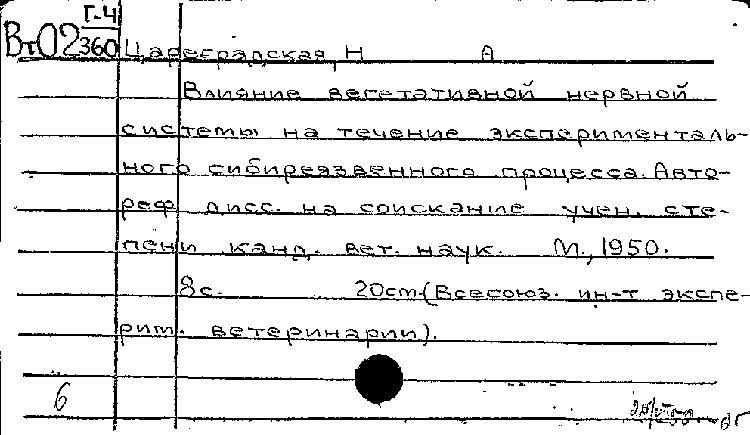 Г-4
Вт02 360
Цареградская, Н А
Влияние вегетативной нервной
системы на течение эксперименталь-
ного сибиреязвенного процесса. Авто-
реф дисс. на соискание учен. сте-
пени канд. вет. наук. М., 1950.
8с. 20см.(Всесоюз. ин-т экспе-
рит. ветеринарии).
6